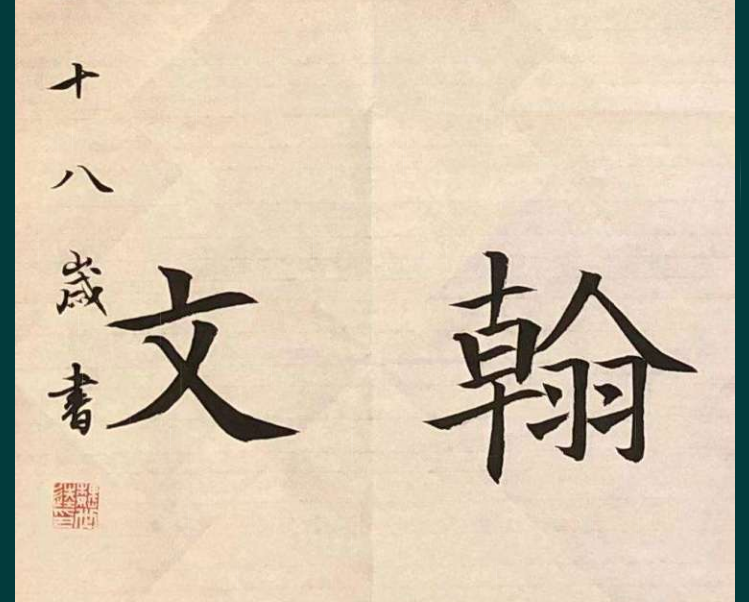 翰文
十八歲書